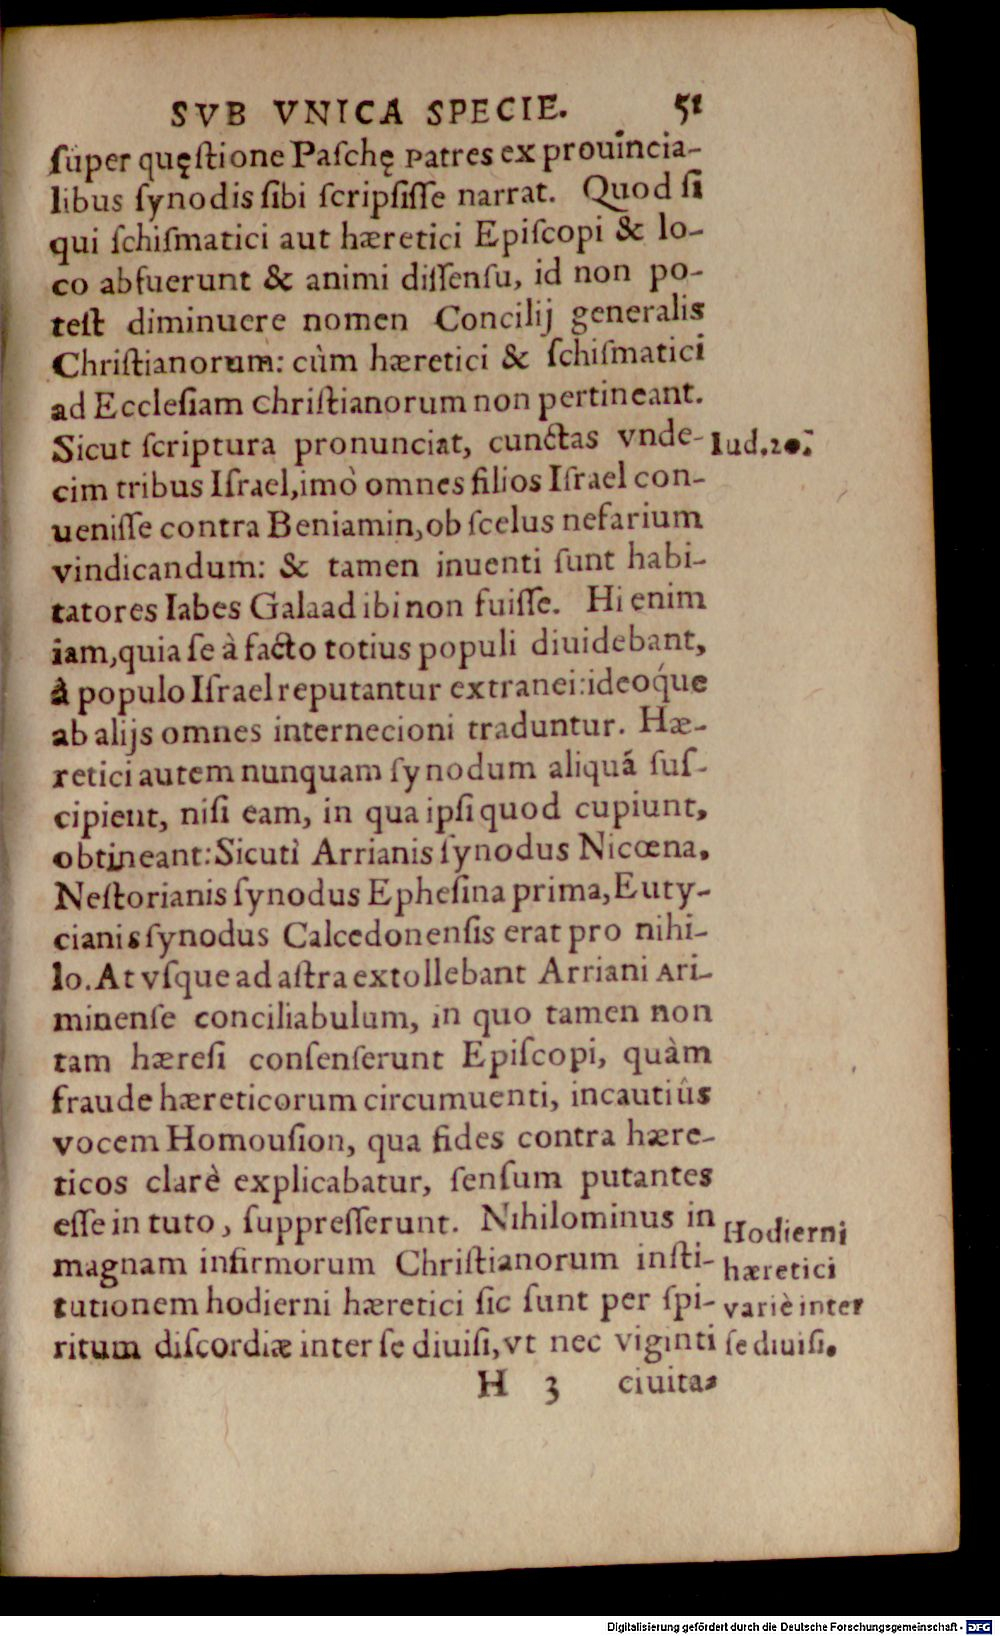 SVB VNICA SPECIE. 51
ſuper quęſtione Paſchę patres ex prouincia-
libus ſynodis ſibi ſcripſiſſe narrat. Quod ſi
qui ſchiſmatici aut hæretici Epiſcopi & lo-
co abfuerunt & animi diſſenſu, id non po-
teſt diminuere nomen Concilij generalis
Chriſtianorum: cùm hæretici & ſchiſmatici
ad Eccleſiam chriſtianorum non pertineant.
Sicut ſcriptura pronunciat, cunctas vnde-
Iud. 20.
cim tribus Iſrael, imò omnes filios Iſrael con-
ueniſſe contra Beniamin, ob ſcelus nefarium
vindicandum: & tamen inuenti ſunt habi-
tatores Iabes Galaad ibi non fuiſſe. Hi enim
iam, quia ſe à facto totius populi diuidebant,
à populo Iſrael reputantur extranei: ideoq́ue
ab alijs omnes internecioni traduntur. Hæ-
retici autem nunquam ſynodum aliquā ſuſ-
cipient, niſi eam, in qua ipſi quod cupiunt,
obtineant: Sicuti Arrianis ſynodus Nicœna,
Neſtorianis ſynodus Epheſina prima, Euty-
cianis ſynodus Calcedonenſis erat pro nihi-
lo. At vſque ad aſtra extollebant Arriani Ari-
minenſe conciliabulum, in quo tamen non
tam hæreſi conſenſerunt Epiſcopi, quàm
fraude hæreticorum circumuenti, incautiùs
vocem Homouſion, qua fides contra hære-
ticos clarè explicabatur, ſenſum putantes
eſſe in tuto, ſuppreſſerunt. Nihilominus in
magnam infirmorum Chriſtianorum inſti-
tutionem hodierni hæretici ſic ſunt per ſpi-
ritum diſcordiæ inter ſe diuiſi, vt nec viginti
Hodierni
hæretici
variè inter
ſe diuiſi.
H 3 ciuita-
Digitalisierung gefördert durch die Deutsche Forschungsgemeinschaft - DFG